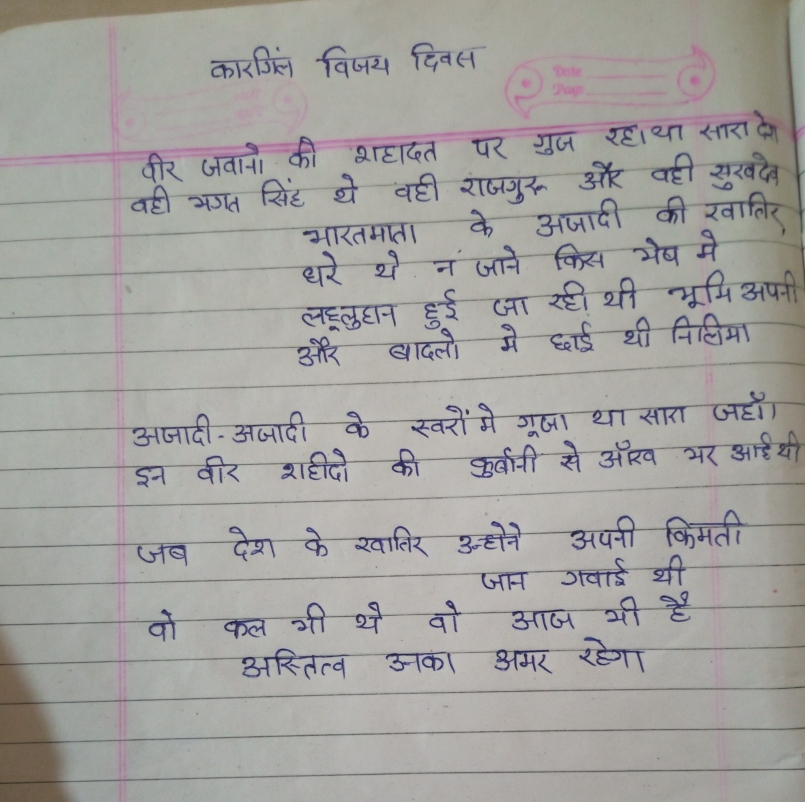 कारगिल विजय दिवस
Date
Page
वीर जवानो की शहादत पर गुज रहा था सारा देश
वही भगत सिंह थे वही राजगुरू और वही सुखदेव
भारतमाता के अजादी की खातिर,
धरे थे न जाने किस भेष मे
लहूलुहान हुई जा रही थी भूमि अपनी
और बादलो मे छाई थी निलिमा
अजादी-अजादी के स्वरों मे गूजा था सारा जहाँ।
इन वीर शहीदो की कुर्बानी से आँख भर आई थी
जब देश के खातिर उन्होने अपनी किमती
जान गवाई थी
वो कल भी थे वो आज भी है
अस्तित्व उनका अमर रहेगा